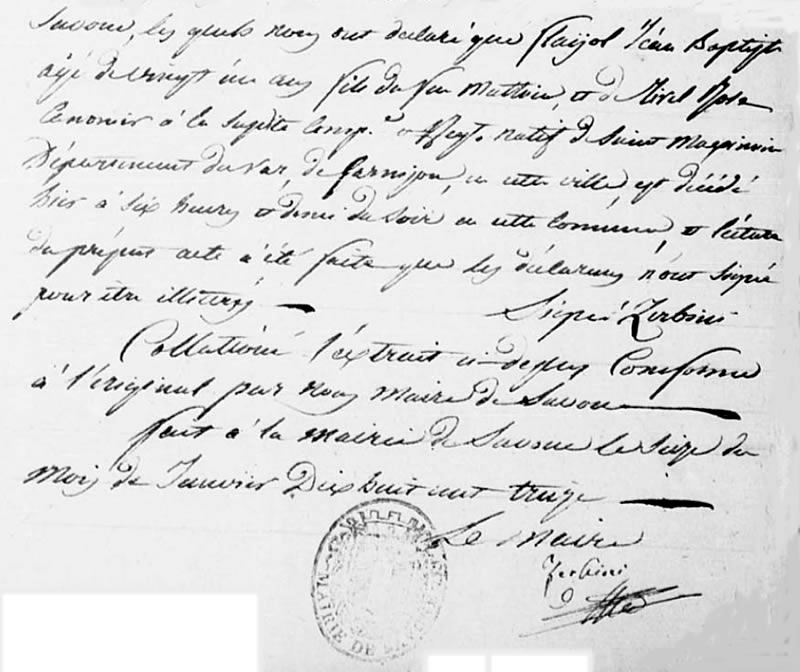 Savone, les quels nous ont declaré que Flayol Jean Baptiste
âgé de vingt un ans fils du feu Mathieu, et de Rose
Canonier à la susdite Comp.e natif de Saint Maximin
Département du Var, de garnison, en cette ville, est décédé
hier à six heures et demi du soir en cette Commune, et lecture
du présent acte a été faite que les déclarans n'ont signé
pour être illiterés
Signé Zerbini
Collationné l'extrait ci-dessus Conforme
à l'original par nous Maire de Savone
fait à la Mairie de Savone le seize du
Mois de Janvier Dix huit cent treize
Le Maire
Zerbini
MAIRIE DE SAVONE